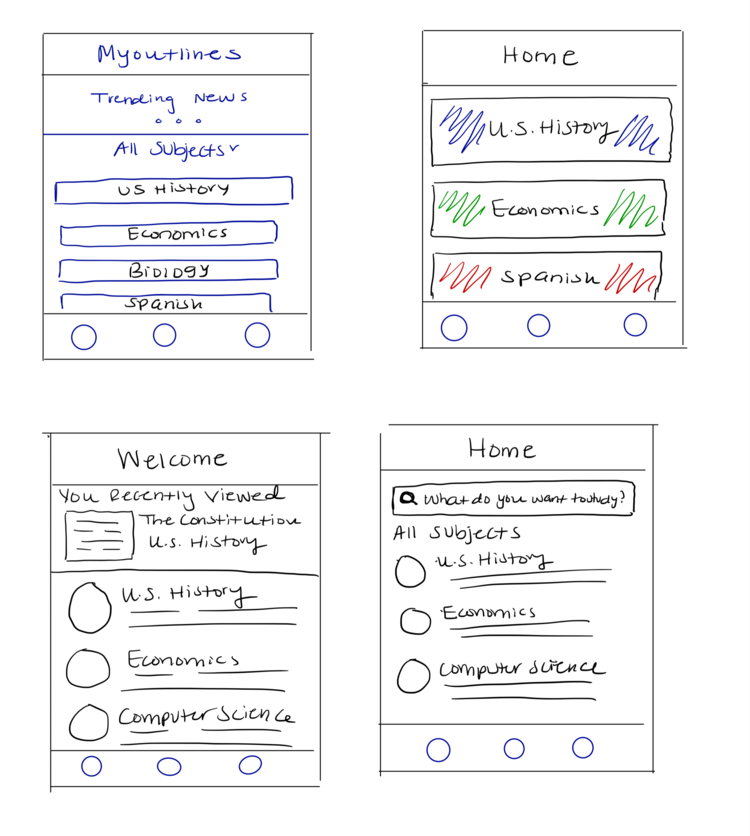 Myoutlines
Trending News
All Subjects
US History
Economics
Biology
Spanish
Home
U.S. History
Economics
Spanish
Welcome
You Recently Viewed
The Constitution
U.S. History
U.S. History
Economics
Computer Science
Home
What do you want to study?
All Subjects
U.S. History
Economics
Computer Science